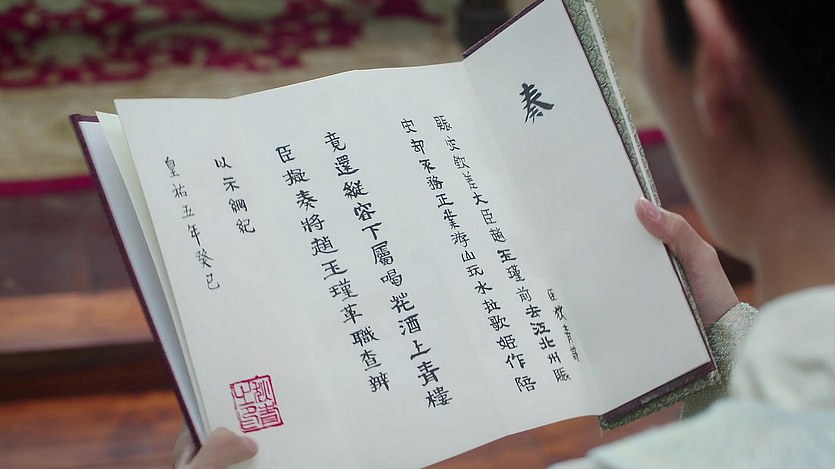 奏
臣狄青
賑灾欽差大臣趙玉瑾前去江北州賑
灾却不務正業游山玩水拉歌姬作陪
竟還縱容下屬喝花酒上青樓
臣擬奏將趙玉瑾革職查辦
以示綱紀
皇祐五年癸巳
狄青之印